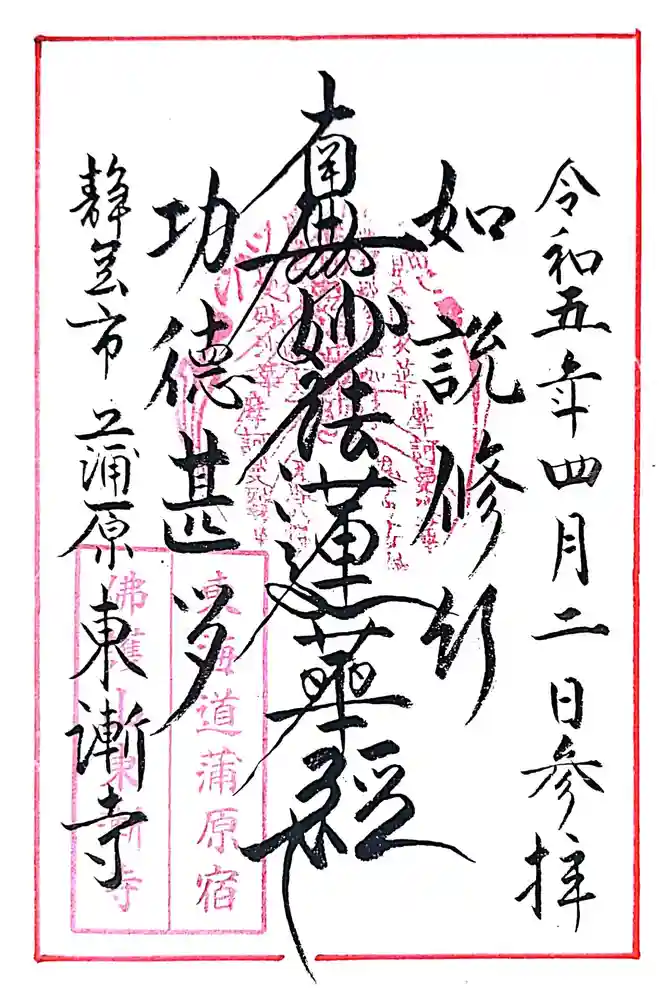 令和五年四月二日参拝
如説修行
南無妙法蓮華経
功徳甚多
静岡市蒲原東漸寺
東海道蒲原宿
東漸寺